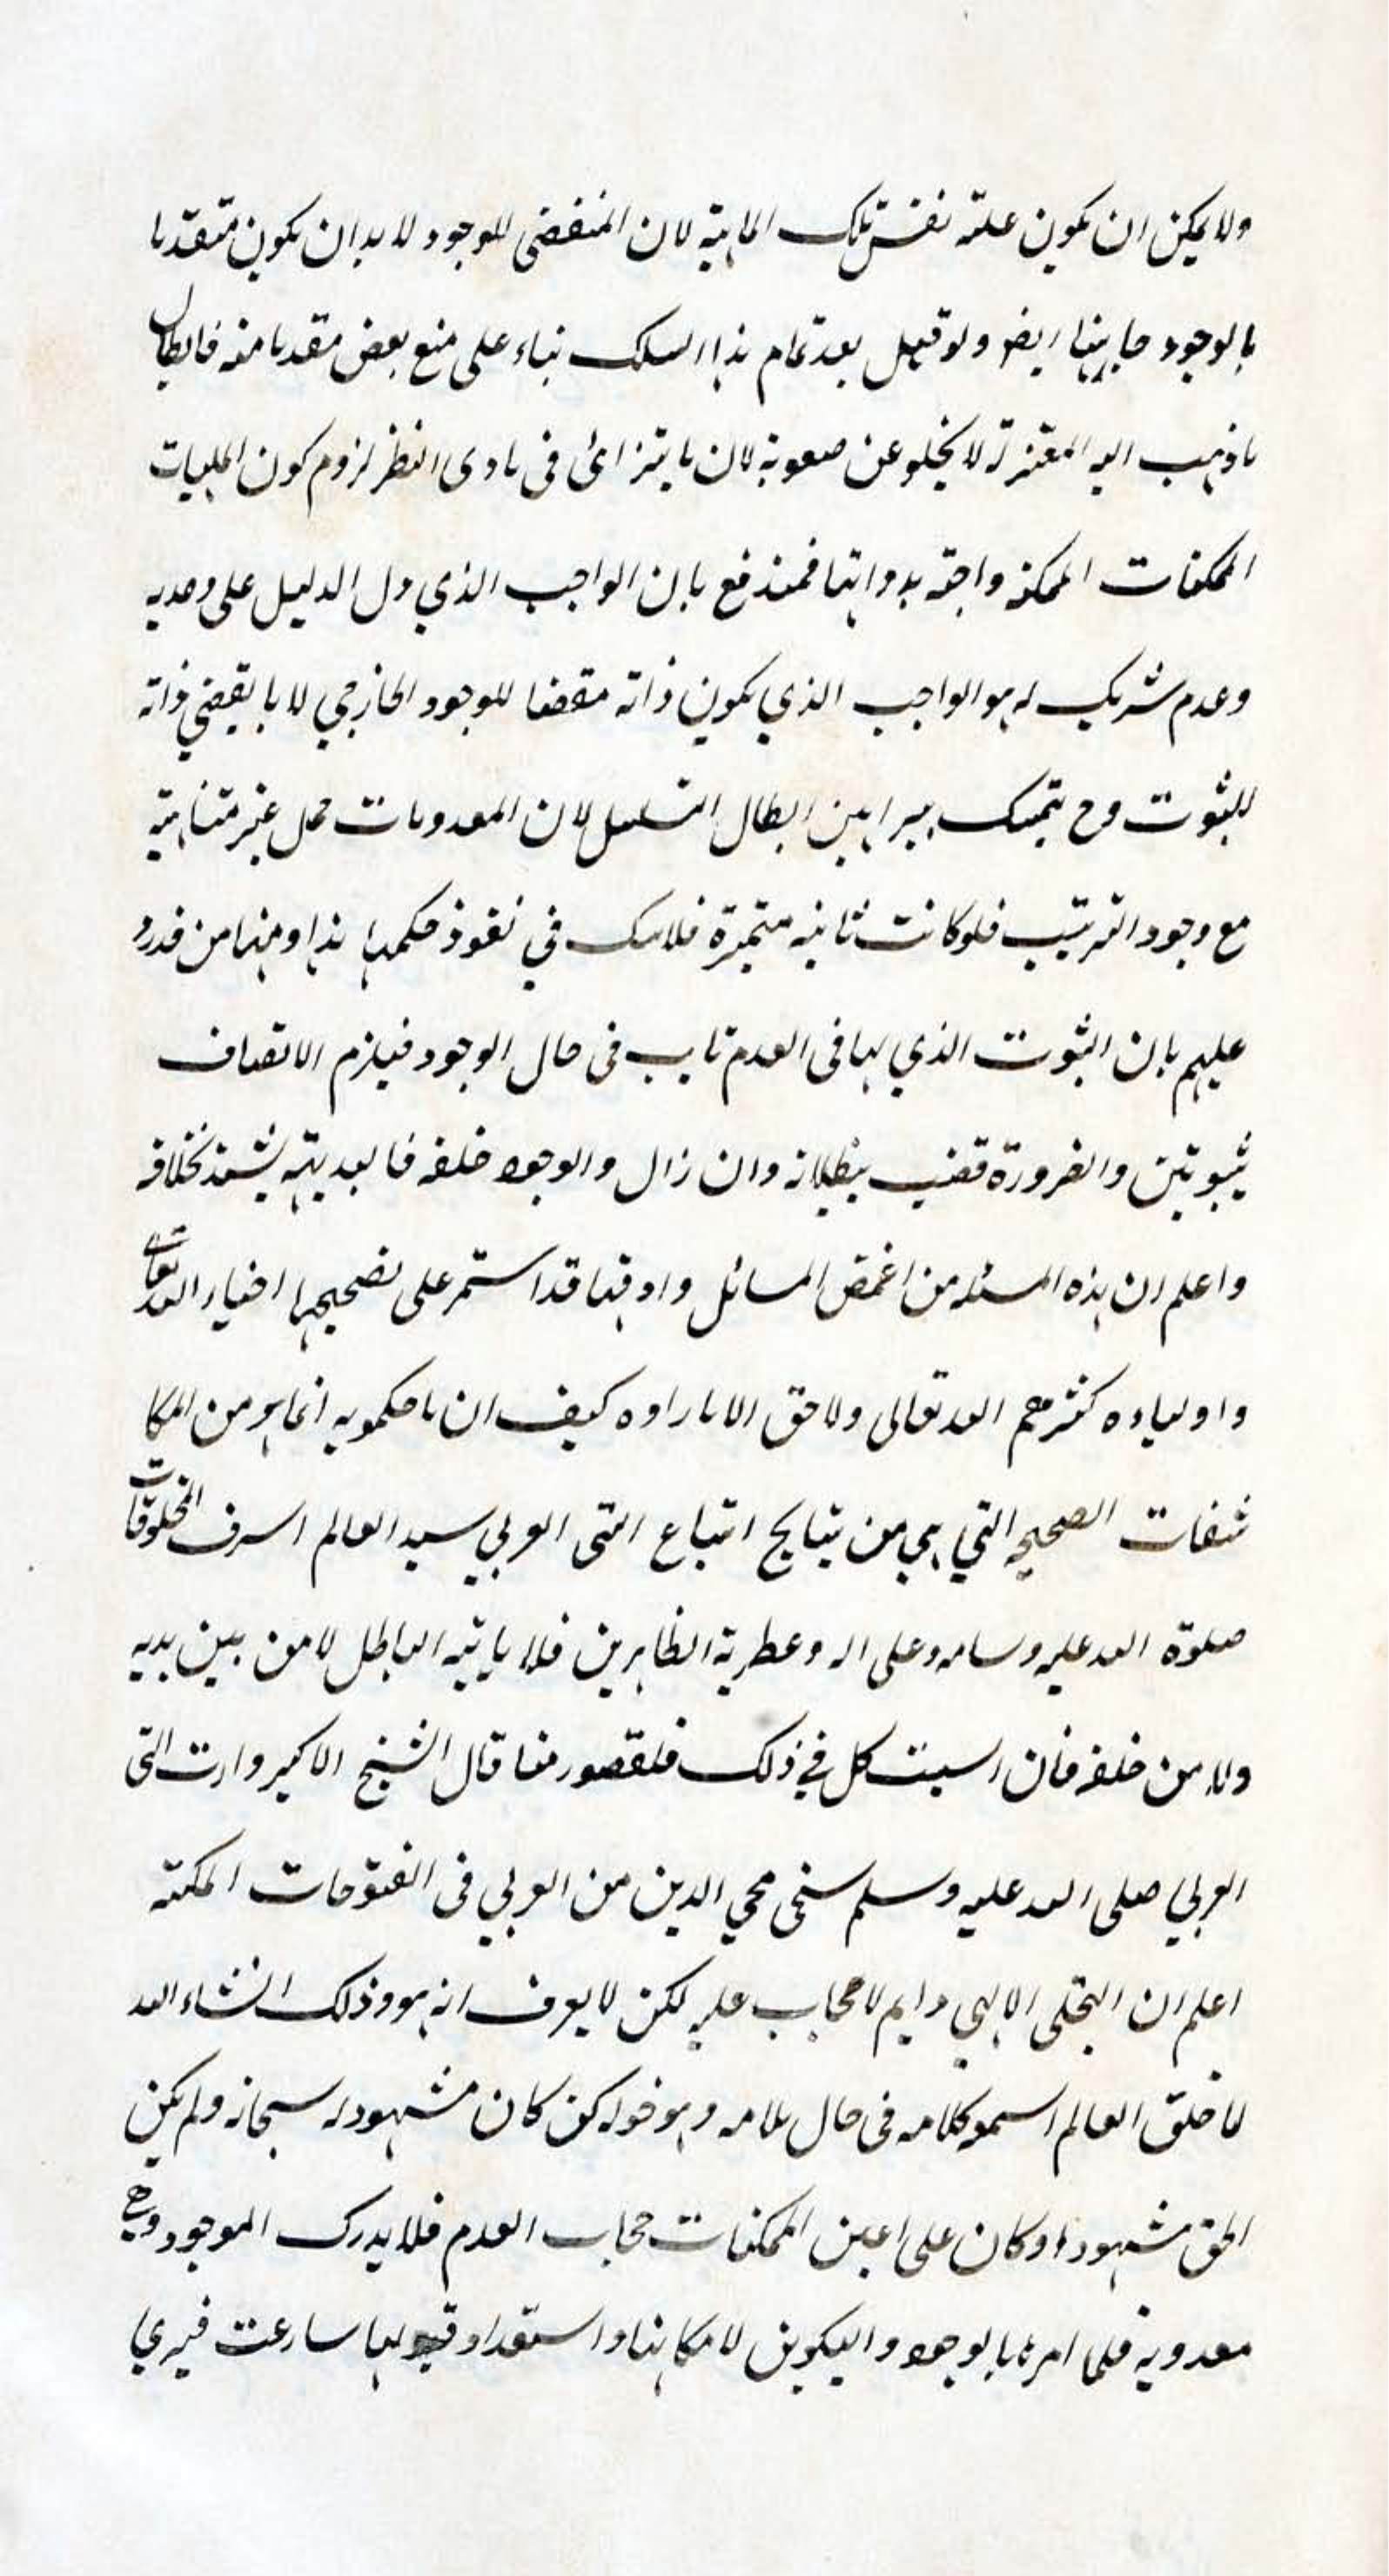 ولا يمكن ان يكون علته نفس تلك الماهية لان المقتضى للوجود لا بد ان يكون متقدما
بالوجود ايضا ولو قيل بعد تمام هذا المسلك بناء على منع بعض مقدماته فابطال
ما ذهب اليه المعتزلة لا يخلو عن صعوبة لان ما يترائى فى بادى النظر لزوم كون الماهيات
الممكنات الممكنة واجبة بذواتها فمندفع بان الواجب الذي دل الدليل على وحدته
وعدم شريك له هو الواجب الذي يكون ذاته مقتضا للوجود الخارجي لا ما يقتضي ذاته
للثبوت وح يتمسك ببراهين ابطال التسلسل لان المعدومات محل غير متناهية
مع وجود الترتيب فلو كانت ثابتة متميزة فلا شك في نفوذ حكمها هذا ومنها من
عليهم بان الثبوت الذي لها فى العدم ثابت فى حال الوجود فيلزم الاتصاف
بثبوتين والضرورة قضت ببطلانه وان زال والوجود خلفه فالبديهة تشهد بخلافه
واعلم ان هذه المسئلة من اغمض المسائل وادقها قد استمر على تصحيحها اخيار الله تعالى
واولياءه كثرهم الله تعالى ولا حق الا ما راوه كيف ان ما حكموا به انما هو من المكا
شفات الصحيحه التي هي من نتايج اتباع النبى العربي سيد العالم اشرف المخلوقات
صلوة الله عليه وسلامه وعلى اله وعطرية الطاهرين فلا ياتيه الباطل لا من بين يديه
ولا من خلفه فان في ذلك فلقصور منا قال الشيخ الاكبر وارث النبى
العربي صلى الله عليه وسلم شيخى محي الدين من العربي فى الفتوحات المكية
اعلم ان التجلى الالهي دايم لا حجاب عليه لكن لا يعرف انه هو وذلك انشاء الله
لما خلق العالم اسمعه كلامه فى حال عدمه وهو قوله كن كان مشهودا له سبحانه ولم يكن
الحق مشهودا وكان على اعين الممكنات حجاب العدم فلا يدرك الموجود وهي
معدومة فلما امرها بالوجود والتكوين لامكانها واستعداد قبولها سارعت فيرى